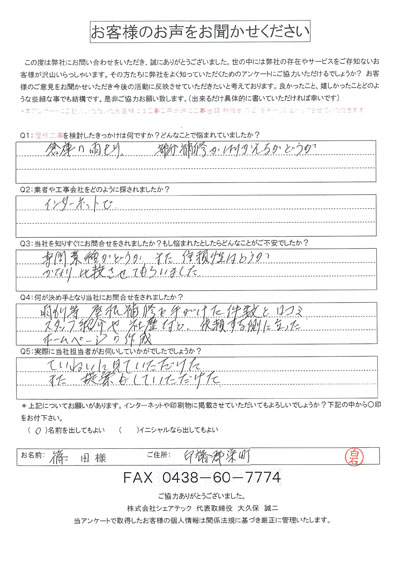 お客様のお声をお聞かせください
この度は弊社にお問い合わせをいただき、誠にありがとうございました。世の中には弊社の存在やサービスをご存知ないお
客様が沢山いらっしゃいます。その方たちに弊社をよく知っていただくためのアンケートにご協力いただけるでしょうか？ お客
様のご意見をお聞かせいただき今後の活動に反映させていただきたいと考えております。良かったこと、嬉しかったことどのよ
うな些細な事でも結構です。是非ご協力お願い致します。（出来るだけ具体的に書いていただければ幸いです）
Q1: 屋根工事を検討したきっかけは何ですか？どんなことで悩まれていましたか？
倉庫の雨もり。 部分補修が行えるかどうか
Q2: 業者や工事会社をどのように探されましたか？
インターネットで
Q3: 当社を知りすぐにお問合せをされましたか？もし悩まれたとしたらどんなことがご不安でしたか？
専門業種かどうか、また 信頼性はどうか
かなり比較させてもらいました
Q4: 何が決め手となり当社にお問合せをしましたか？
雨別等 屋根補修を手がけた件数と口コミ
スタッフ紹介や社歴など、依頼する側に立った
ホームページの作成
Q5: 実際に当社担当者がお伺いしていかがでしたでしょうか？
ていねいに見ていただけた
また 提案もしていただけた
＊上記についてお願いがあります。インターネットや印刷物に掲載させていただいてもよろしいでしょうか？下記の中から〇印
をお付け下さい。
（ 〇 ）名前を出してもよい （ ）イニシャルなら出してもよい
お名前： 篠田 様 ご住所： 印旛郡栄町 白石
FAX 0438-60-7774
ご協力ありがとうございました。
株式会社シェアテック 代表取締役 大久保 誠二
当アンケートで取得したお客様の個人情報は関係法規に基づき厳正に管理いたします。